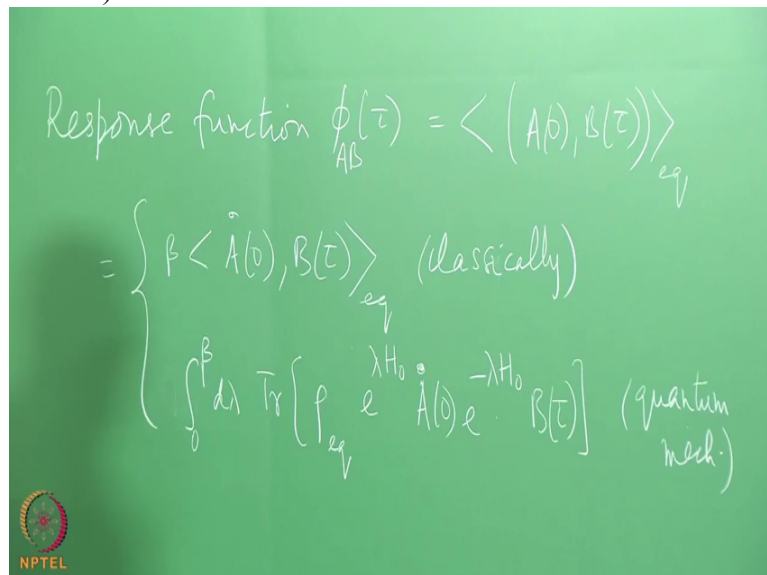 Response function ϕ_AB(τ) = <(A(0), B(τ))>_eq
= { β <Ȧ(0), B(τ)>_eq (classically)
∫_0^β dλ Tr[ρ_eq e^{λH₀} Ȧ(0) e^{-λH₀} B(τ)] (quantum mech.)
NPTEL